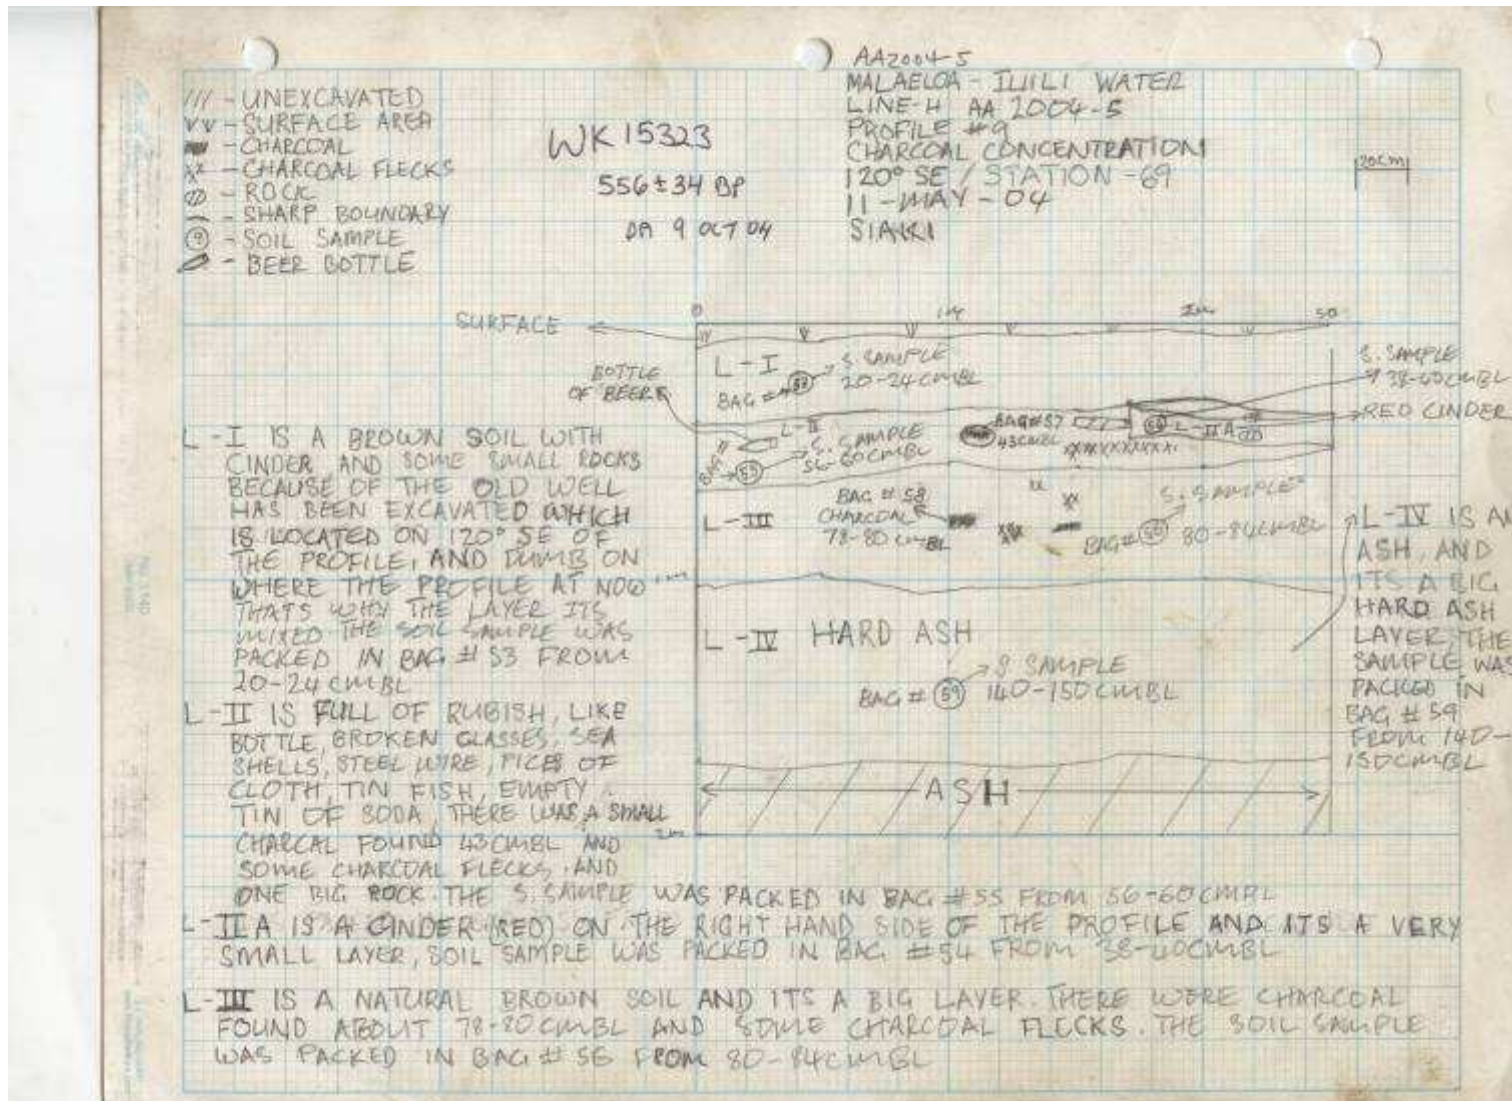 /// - UNEXCAVATED
VV - SURFACE AREA
- CHARCOAL
XX - CHARCOAL FLECKS
- ROCK
- SHARP BOUNDARY
- SOIL SAMPLE
- BEER BOTTLE
WK 15323
556±34 BP
9 OCT 04
AA2004-5
MALAELOA - ILIILI WATER
LINE-H AA 2004-5
PROFILE #9
CHARCOAL CONCENTRATION
120° SE / STATION - 69
11 - MAY - 04
SIAKI
20CM
SURFACE
0
1M
2M
50
BOTTLE
OF BEER
L-I
S. SAMPLE
BAG # 53
20-24 CMBL
S. SAMPLE
38-40CMBL
RED CINDER
L-II
BAG #
55
S. SAMPLE
56-60CMBL
BAG #57
43CMBL
54
L-IIA
L-III
BAG # 58
CHARCOAL
78-80 CMBL
S. SAMPLE
BAG # 56
80-84CMBL
1M
L-IV HARD ASH
S SAMPLE
BAG # 59 140-150CMBL
ASH
2M
L-IV IS AN
ASH, AND
ITS A BIG
HARD ASH
LAYER, THE
SAMPLE WAS
PACKED IN
BAG # 59
FROM 140-
150CMBL
L-I IS A BROWN SOIL WITH
CINDER AND SOME SMALL ROCKS
BECAUSE OF THE OLD WELL
HAS BEEN EXCAVATED WHICH
IS LOCATED ON 120° SE OF
THE PROFILE, AND DUMB ON
WHERE THE PROFILE AT NOW
THATS WHY THE LAYER ITS
MIXED THE SOIL SAMPLE WAS
PACKED IN BAG # 53 FROM
20-24 CMBL
L-II IS FULL OF RUBISH, LIKE
BOTTLE, BROKEN GLASSES, SEA
SHELLS, STEEL WIRE, PICES OF
CLOTH, TIN FISH, EMPTY
TIN OF SODA, THERE WAS A SMALL
CHARCAL FOUND 43CMBL AND
SOME CHARCOAL FLECKS, AND
ONE BIG ROCK. THE S. SAMPLE WAS PACKED IN BAG #55 FROM 56-60CMBL
L-IIA IS A CINDER (RED) ON THE RIGHT HAND SIDE OF THE PROFILE AND ITS A VERY
SMALL LAYER, SOIL SAMPLE WAS PACKED IN BAG #54 FROM 38-40CMBL
L-III IS A NATURAL BROWN SOIL AND ITS A BIG LAYER. THERE WERE CHARCOAL
FOUND ABOUT 78-80CMBL AND SOME CHARCOAL FLECKS. THE SOIL SAMPLE
WAS PACKED IN BAG # 56 FROM 80-84CMBL